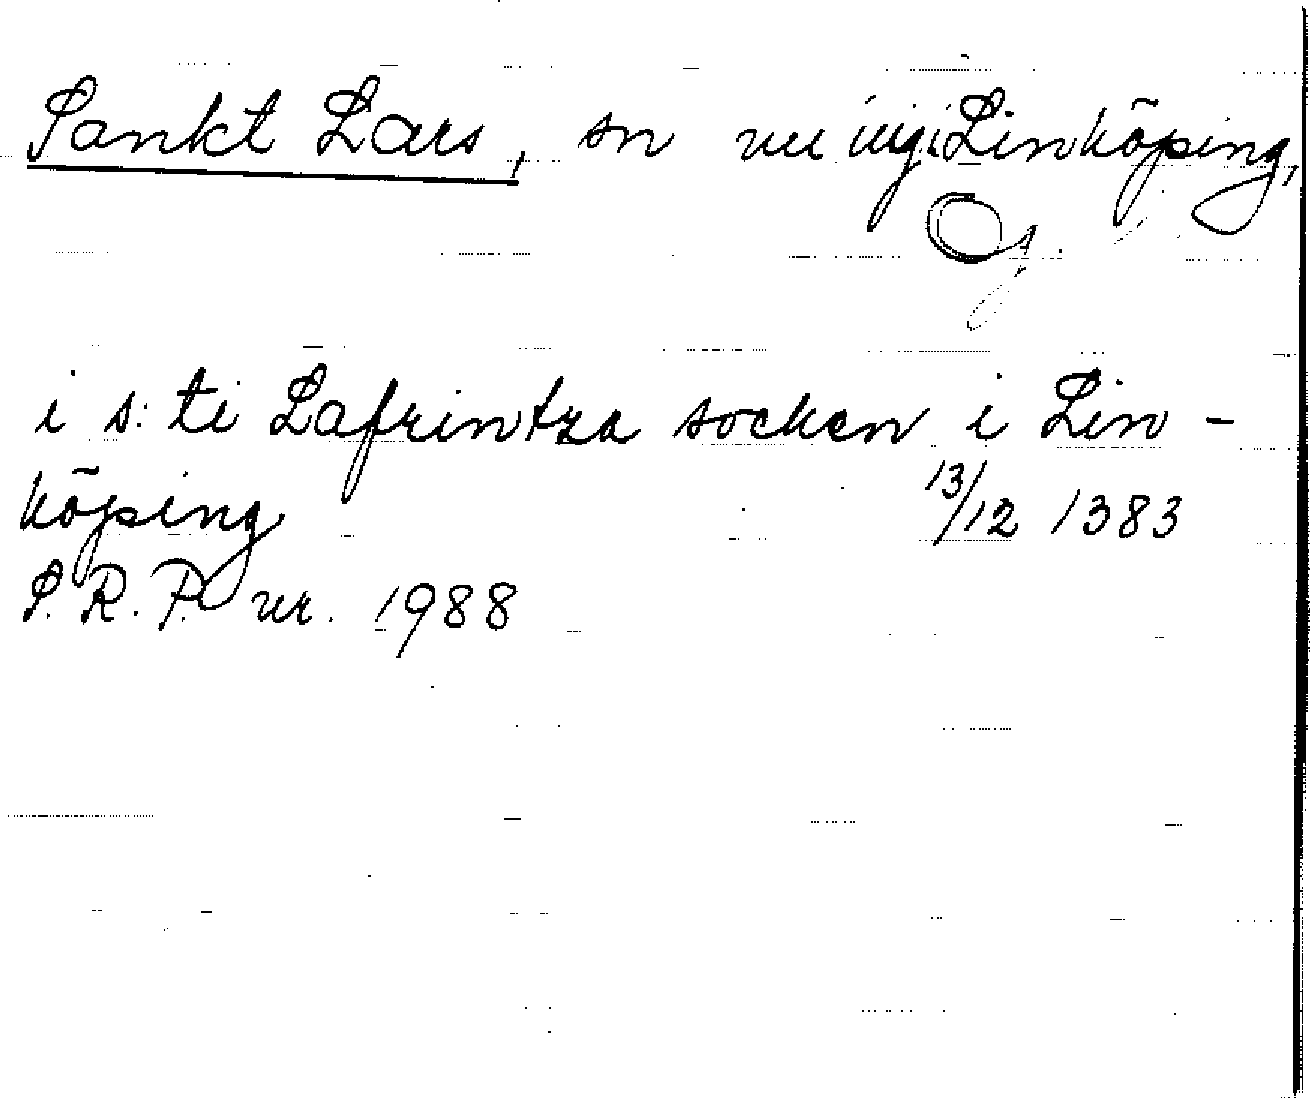 Sankt Lars, sn nu ingi Linköping,
Ög.
i s: ti Lafrintza socken i Lin-
köping 13/12 1383
S.R.P. nr. 1988